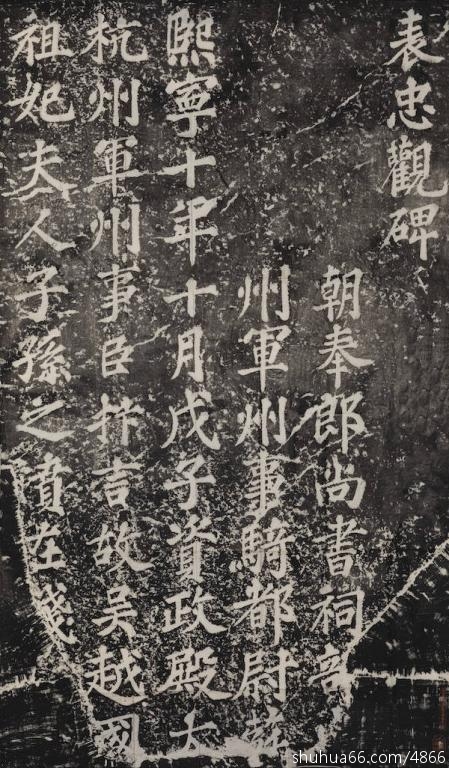 表忠觀碑
朝奉郎尚書祠部
州軍州事騎都尉
熙寧十年十月戊子資政殿大
杭州軍州事臣抃言故吳越國
祖妃夫人子孫之墳在錢
shuhua66.com/4866